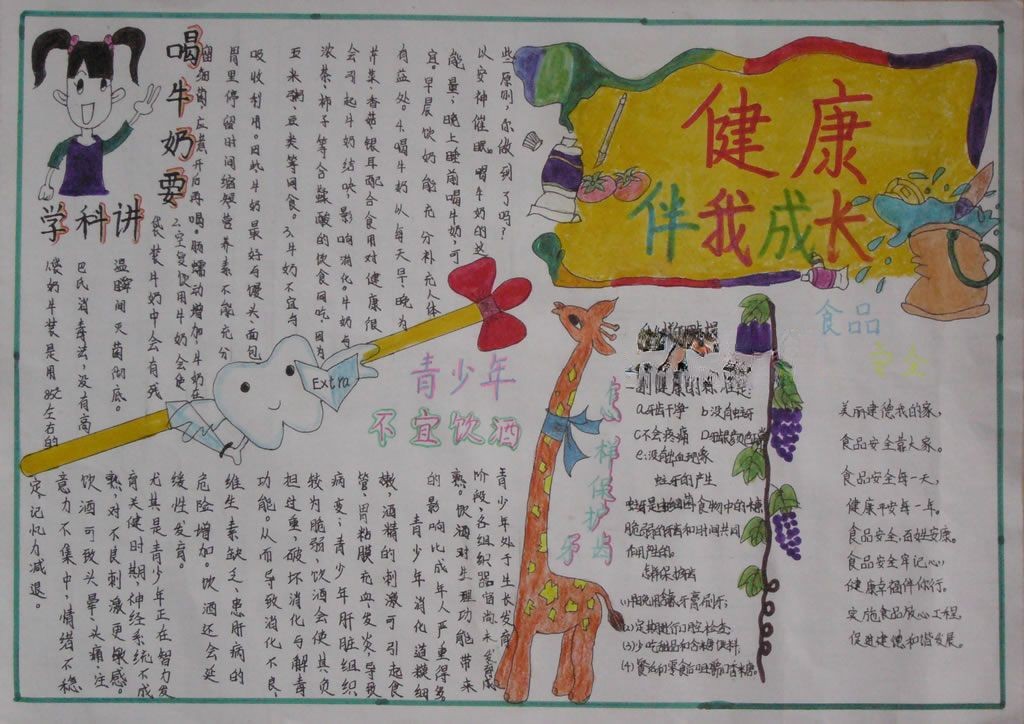 健康
伴我成长
喝牛奶要
学科讲
些原则，你做到了吗？
以安神催眠。喝牛奶的这
能量，晚上睡前喝牛奶，可
宜。早晨饮奶能充分补充人体
有益处。4.喝牛奶从每天早、晚为
芹菜、香菇、银耳配合食用对健康很
会引起牛奶结块，影响消化。牛奶与
浓茶、柿子等含鞣酸的饮食同吃，因为
玉米粥、豆类等同食。3.牛奶不宜与
吸收利用。因此牛奶最好与馒头、面包
胃里停留时间缩短营养素不能充分
应煮开后再喝。肠蠕动增加，牛奶在
2.空复饮用牛奶会使
袋装牛奶中会有残
温瞬间灭菌彻底。
巴氏消毒法，没有高
偿奶牛装是用85℃左右的
Extra
青少年
不宜饮酒
青少年处于生长发育
阶段，各组织器官尚未发育成
熟。饮酒对生理功能带来
的影响比成年人严重得多
青少年消化道模细
嫩，酒精的刺激可引起食
管、胃粘膜充血、发炎，导致
病变；青少年肝脏组织
较为脆弱，饮酒会使其负
担过重，破坏消化与解毒
功能。从而导致消化不良，
维生素缺乏，患肝病的
危险增加。饮酒还会延
缓性发育。
尤其是青少年正在智力发
育关健时期，神经系统不成
熟，对不良刺激更敏感。
饮酒可致头晕、头痛、注
意力不集中，情绪不稳
定，记忆力减退。
怎样保护牙齿
a.牙齿干净 b.没有虫牙
c.不会疼痛
e.没有出血现象
蛀牙的产生
食物中的糖
和时间共同
作用产生的。
怎样保护牙齿
(1)早晚用餐不离刷牙；
(2)定期进行口腔检查；
(3)少吃甜品和含糖饮料
食品
安全
美丽建德我的家，
食品安全靠大家。
食品安全每一天，
健康平安每一年。
食品安全，百姓安康。
食品安全牢记心
健康幸福伴你行。
实施食品放心工程
促进建德和谐发展。